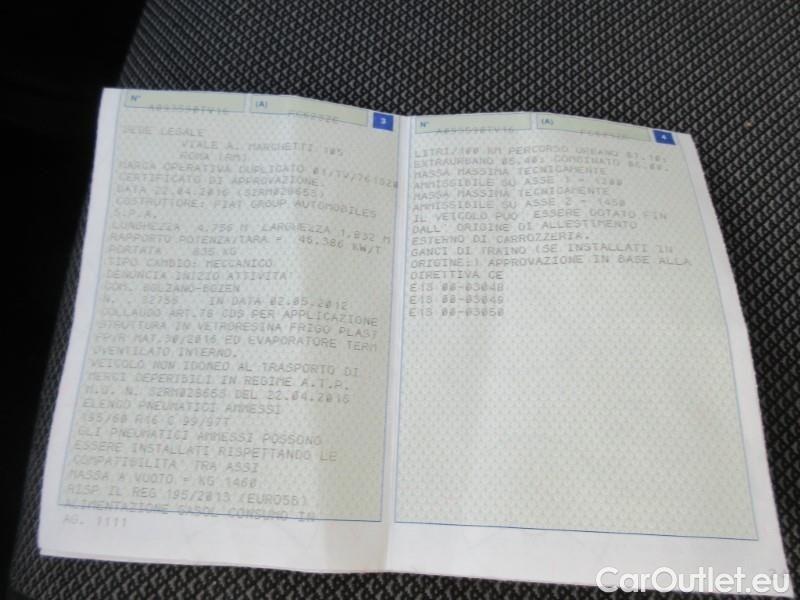 N°
A093590TV16
(A)
3
SEDE LEGALE
VIALE A. MARCHETTI 105
ROMA (RM)
MARCA OPERATIVA DUPLICATO 01/TV/761520
CERTIFICATO DI APPROVAZIONE:
DATA 22.04.2016 (S2RM028665)
COSTRUTTORE: FIAT GROUP AUTOMOBILES
S.P.A.
LUNGHEZZA 4,756 M LARGHEZZA 1,832 M
RAPPORTO POTENZA/TARA = 45.386 KW/T
PORTATA 635 KG
TIPO CAMBIO: MECCANICO
DENUNCIA INIZIO ATTIVITA'
COM. BOLZANO-BOZEN
N. 32756 IN DATA 02.05.2012
COLLAUDO ART.78 CDS PER APPLICAZIONE
STRUTTURA IN VETRORESINA FRIGO PLAST
FPVR MAT.30/2016 ED EVAPORATORE TERM
OVENTILATO INTERNO.
VEICOLO NON IDONEO AL TRASPORTO DI
MERCI DEPERIBILI IN REGIME A.T.P.
M.U. N. S2RM028665 DEL 22.04.2016
ELENCO PNEUMATICI AMMESSI
195/60 R16 C 99/97T
GLI PNEUMATICI AMMESSI POSSONO
ESSERE INSTALLATI RISPETTANDO LE
COMPATIBILITA' TRA ASSI
MASSA A VUOTO = KG 1460
RISP IL REG 195/2013 (EURO5B)
ALIMENTAZIONE GASOL CONSUMO IN
AG. 1111
N°
A093590TV16
(A)
4
LITRI/100 KM PERCORSO URBANO 07.10:
EXTRAURBANO 05.40: COMBINATO 06.00.
MASSA MASSIMA TECNICAMENTE
AMMISSIBILE SU ASSE 1 = 1200
MASSA MASSIMA TECNICAMENTE
AMMISSIBILE SU ASSE 2 = 1450
IL VEICOLO PUO' ESSERE DOTATO FIN
DALL' ORIGINE DI ALLESTIMENTO
ESTERNO DI CARROZZERIA.
GANCI DI TRAINO (SE INSTALLATI IN
ORIGINE: APPROVAZIONE IN BASE ALLA
DIRETTIVA CE
E13 00-03048
E13 00-03049
E13 00-03050
CarOutlet.eu